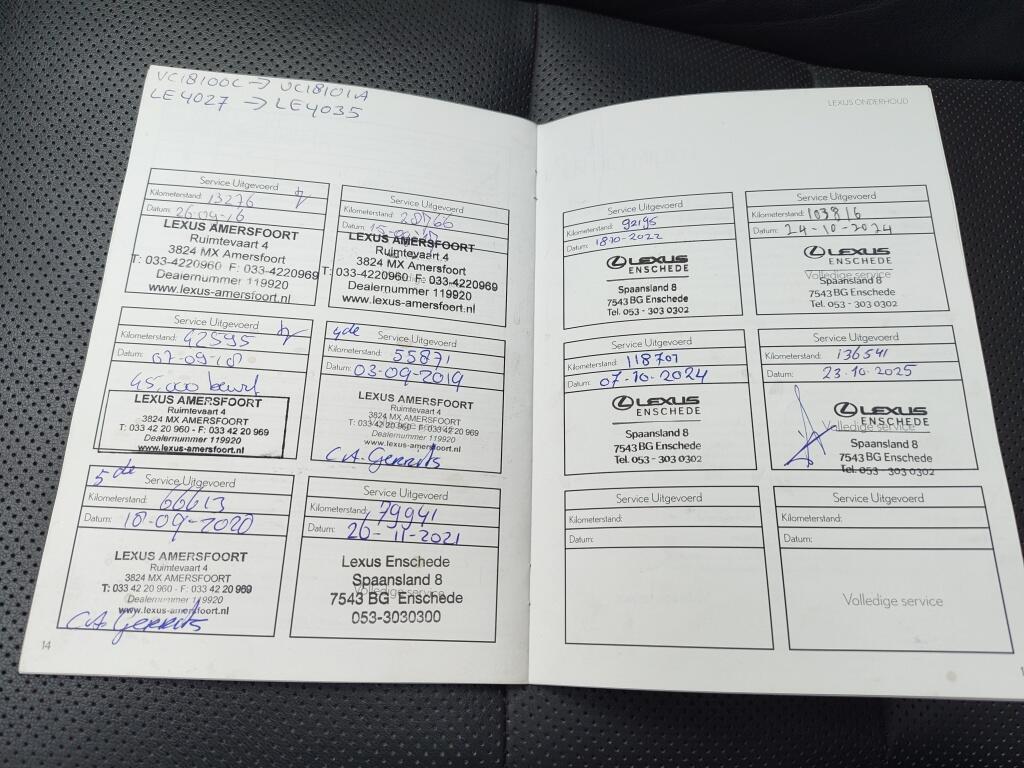 VC18100C → VC18101A
LE4027 → LE4035
LEXUS ONDERHOUD
Service Uitgevoerd
Kilometerstand: 13276
Datum: 26-09-16
LEXUS AMERSFOORT
Ruimtevaart 4
3824 MX Amersfoort
T: 033-4220960 F: 033-4220969
Dealernummer 119920
www.lexus-amersfoort.nl
Service Uitgevoerd
Kilometerstand:
Datum:
LEXUS AMERSFOORT
Ruimtevaart 4
3824 MX Amersfoort
T: 033-4220960 F: 033-4220969
Dealernummer 119920
www.lexus-amersfoort.nl
Service Uitgevoerd
Kilometerstand: 42595
Datum: 07-09-18
45.000 beurt
LEXUS AMERSFOORT
Ruimtevaart 4
3824 MX AMERSFOORT
T: 033 42 20 960 - F: 033 42 20 969
Dealernummer 119920
www.lexus-amersfoort.nl
4de
Service Uitgevoerd
Kilometerstand: 55871
Datum: 03-09-2019
LEXUS AMERSFOORT
Ruimtevaart 4
3824 MX AMERSFOORT
T: 033 42 20 960 - F: 033 42 20 969
Dealernummer 119920
www.lexus-amersfoort.nl
C.A. Gerrits
5de
Service Uitgevoerd
Kilometerstand: 66613
Datum: 18-09-2020
LEXUS AMERSFOORT
Ruimtevaart 4
3824 MX AMERSFOORT
T: 033 42 20 960 - F: 033 42 20 969
Dealernummer 119920
www.lexus-amersfoort.nl
C.A. Gerrits
Service Uitgevoerd
Kilometerstand: 79941
Datum: 26-11-2021
Lexus Enschede
Spaansland 8
Volledige service
7543 BG Enschede
053-3030300
14
Service Uitgevoerd
Kilometerstand: 92195
Datum: 18-10-2022
LEXUS
ENSCHEDE
Spaansland 8
7543 BG Enschede
Tel. 053 - 303 0302
Service Uitgevoerd
Kilometerstand: 103816
Datum: 24-10-2024
LEXUS
ENSCHEDE
Volledige service
Spaansland 8
7543 BG Enschede
Tel. 053 - 303 0302
Service Uitgevoerd
Kilometerstand: 118707
Datum: 07-10-2024
LEXUS
ENSCHEDE
Spaansland 8
7543 BG Enschede
Tel. 053 - 303 0302
Service Uitgevoerd
Kilometerstand: 136541
Datum: 23.10.2025
LEXUS
ENSCHEDE
Volledige service
Spaansland 8
7543 BG Enschede
Tel. 053 - 303 0302
Service Uitgevoerd
Kilometerstand:
Datum:
Service Uitgevoerd
Kilometerstand:
Datum:
Volledige service